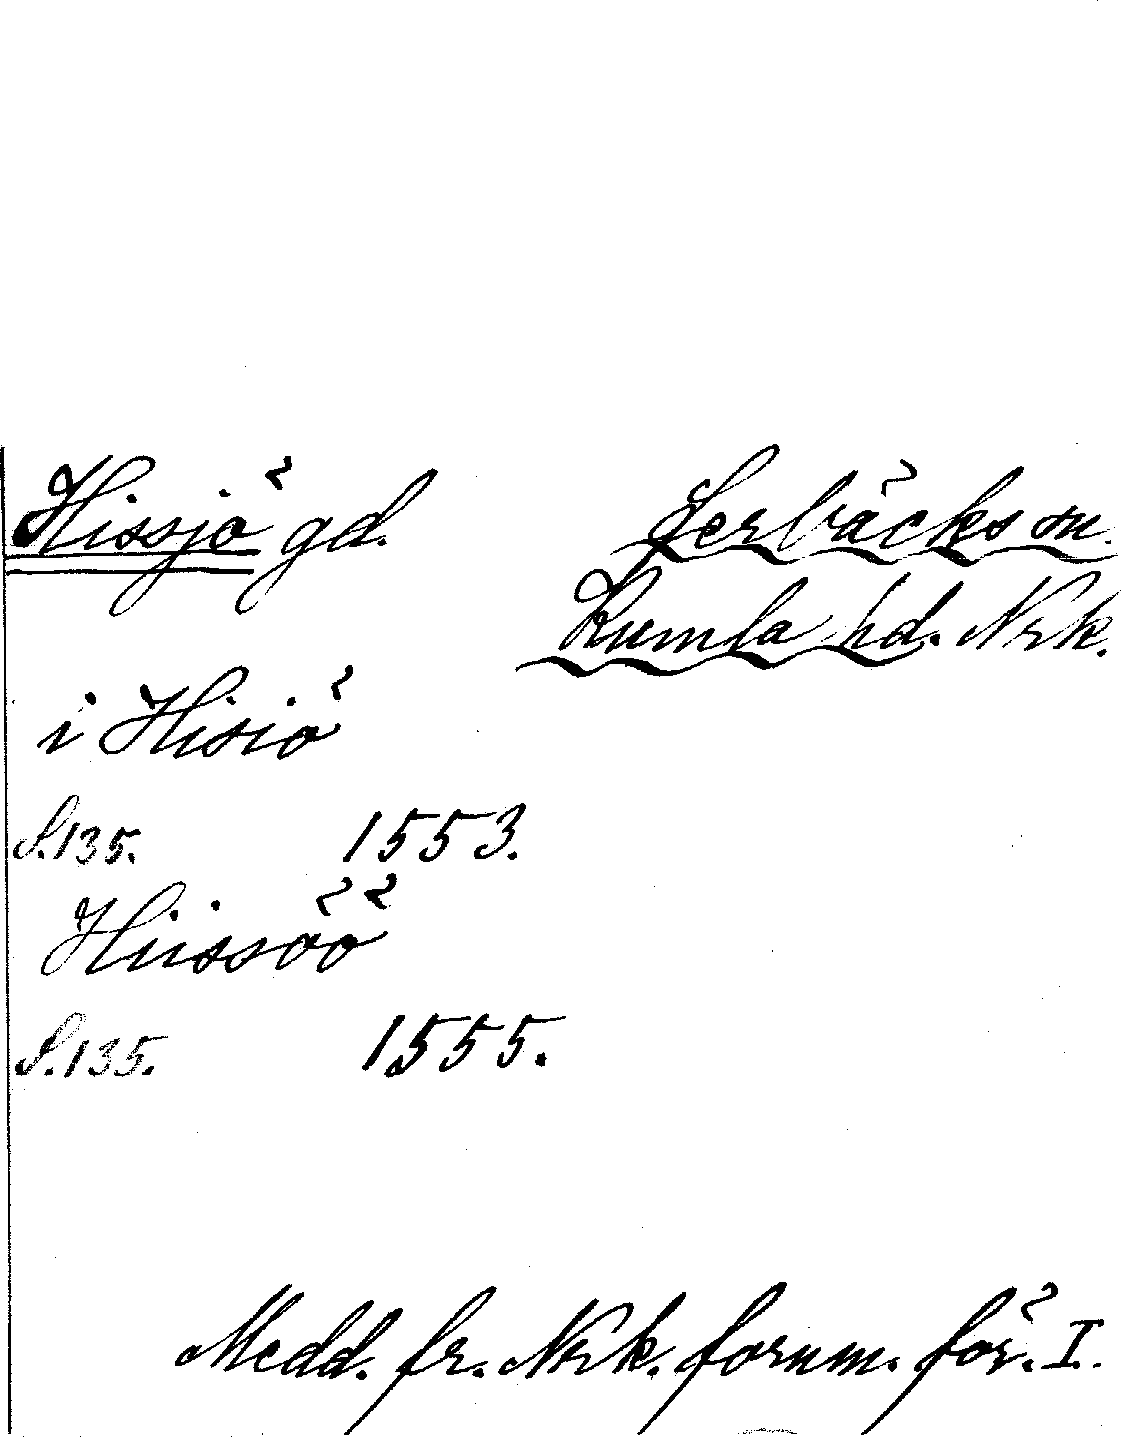 Hissjö gd. Lerbäcks sn.
Kumla hd. Nrk.
i Hisiö
S. 135. 1553.
Hiissöö
S. 135. 1555.
Medd. fr. Nrk. fornm. för. I.